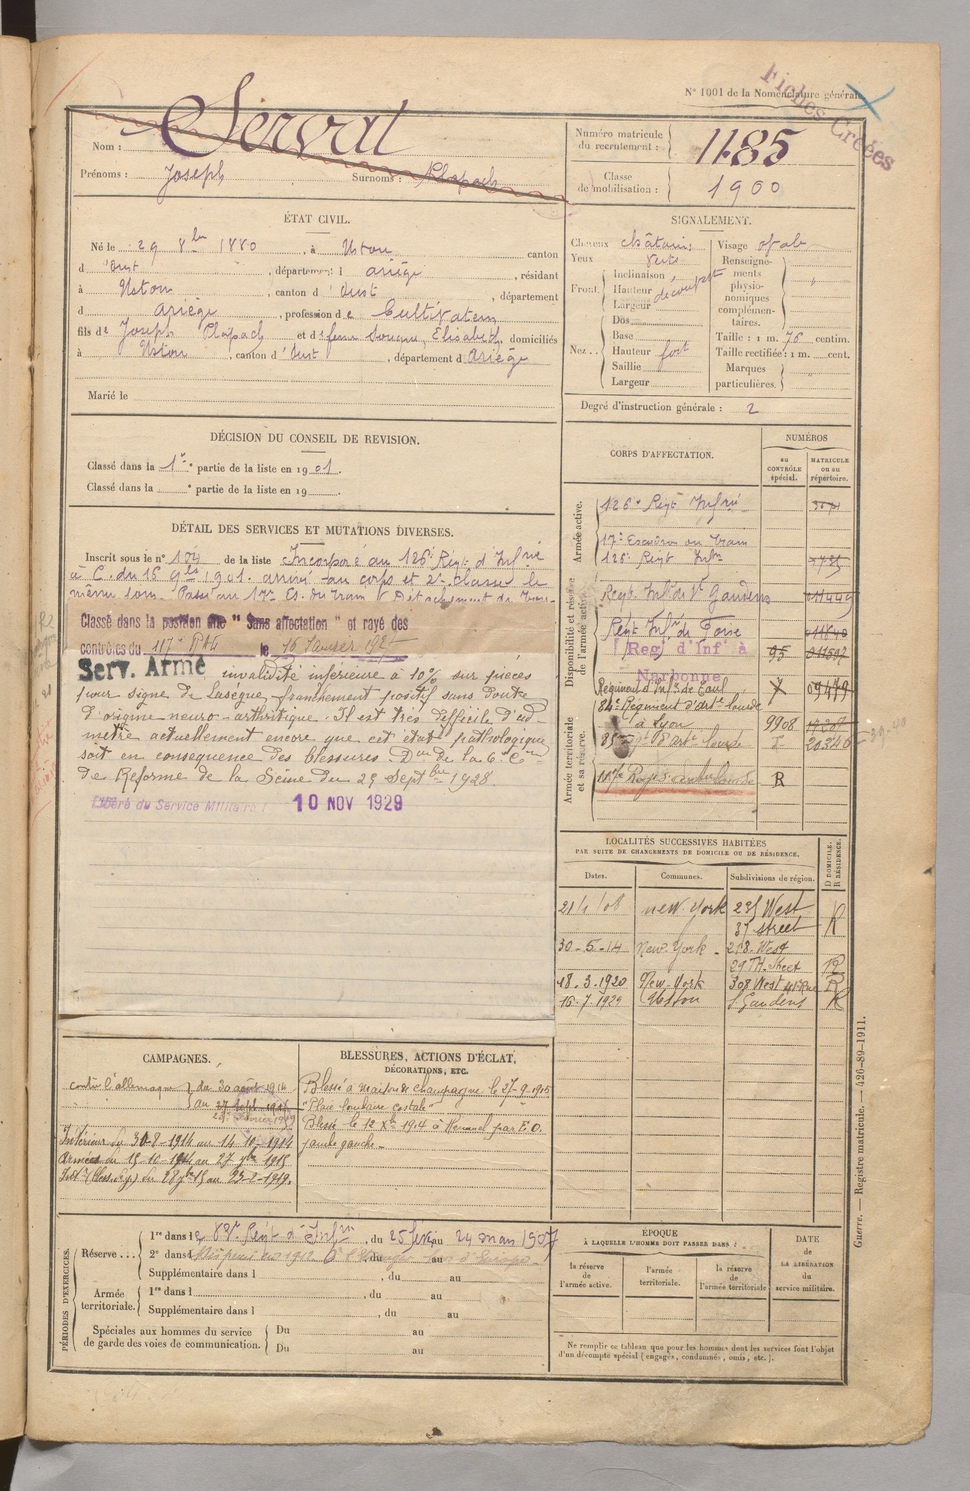 N° 1001 de la Nomenclature générale.
Fiches Créées
Nom : Servat
Prénoms : Joseph Surnoms : Plapach
Numéro matricule du recrutement : 1185
Classe de mobilisation : 1900
ÉTAT CIVIL.
Né le 29 8bre 1880, à Ustou canton
d'Oust, département d Ariège, résidant
à Ustou, canton d'Oust, département
d Ariège, profession de Cultivateur
fils de Joseph Plapach et de feue Souque, Elisabeth, domiciliés
à Ustou, canton d'Oust, département d Ariège
Marié le
SIGNALEMENT.
Cheveux châtains
Yeux verts
Front : Inclinaison
Hauteur découvert
Largeur
Nez : Dos
Base
Hauteur fort
Saillie
Largeur
Visage ovale
Renseignements physionomiques complémentaires. "
Taille : 1 m. 76 centim.
Taille rectifiée : 1 m. cent.
Marques particulières. "
Degré d'instruction générale : 2
DÉCISION DU CONSEIL DE REVISION.
Classé dans la 1re partie de la liste en 1901.
Classé dans la e partie de la liste en 19
DÉTAIL DES SERVICES ET MUTATIONS DIVERSES.
Inscrit sous le n° 104 de la liste Incorporé au 126e Régt d'Infrie
à C. du 16 9bre 1901. arrivé au corps et 2e classe le
même jour. Passé au 17e Es. du Train
Classé dans la position dite " Sans affectation " et rayé des
contrôles du 117e le 16 Janvier 1927
Serv. Armé invalidité inférieure à 10% sur pièces
pour signe de Lasègue franchement positif sans doute
d'origine neuro-arthritique. Il est très difficile d'ad-
mettre actuellement encore que cet état pathologique
soit en conséquence des blessures. Don de la 6e Con
de Réforme de la Seine du 25 Septbre 1928.
Libéré du Service Militaire 10 NOV 1929
CORPS D'AFFECTATION.
NUMÉROS
au CONTRÔLE spécial.
MATRICULE ou au répertoire.
Armée active.
126e Régt Infrie
17e Escadron du Train
126e Régt Infie
Disponibilité et réserve de l'armée active.
Régt Infie de St Gaudens
Régt Infie de Foix
Reg' d'Inf' à 95
Narbonne
Armée territoriale et sa réserve.
84e Régiment d'artie lourde 9908
à Lyon
20340
117e R
LOCALITÉS SUCCESSIVES HABITÉES
PAR SUITE DE CHANGEMENTS DE DOMICILE OU DE RÉSIDENCE.
Dates. Communes. Subdivisions de région. D DOMICILE. R RÉSIDENCE.
new-York West
37 street R
30-5-14 New-York - 218. West
29 TH. Street R
18.3.1920 New-York 308 West R
16-7-1929 Ustou St Gaudens R
CAMPAGNES.
contre l'allemagne du 30 août 1914
au 27 sept 1915
Intérieur du 30-8-1914 au 14-10-1914
Armées du 15-10-1914 au 27-7bre 1915
Intr (bless. ) du 28 7bre 15 au 23-2-1919.
BLESSURES, ACTIONS D'ÉCLAT,
DÉCORATIONS, ETC.
Blessé à Maison de champagne le 27-9-1915
"Plaie lombaire costale"
Blessé le 12 Xbre 1914 à par E.O.
jambe gauche
PÉRIODES D'EXERCICES.
Réserve 1re dans le 88e Régt d'Infie, du 25 fév. au 24 mars 1907
2e dans l , du au
Supplémentaire dans l , du au
Armée territoriale. 1re dans l , du au
Supplémentaire dans l , du au
Spéciales aux hommes du service de garde des voies de communication. Du au
Du au
ÉPOQUE
À LAQUELLE L'HOMME DOIT PASSER DANS :
la réserve de l'armée active.
l'armée territoriale.
la réserve de l'armée territoriale
DATE de LA LIBÉRATION du service militaire.
Ne remplir ce tableau que pour les hommes dont les services font l'objet
d'un décompte spécial (engagés, condamnés, omis, etc.).
Guerre. — Registre matricule. — 426-89-1911.